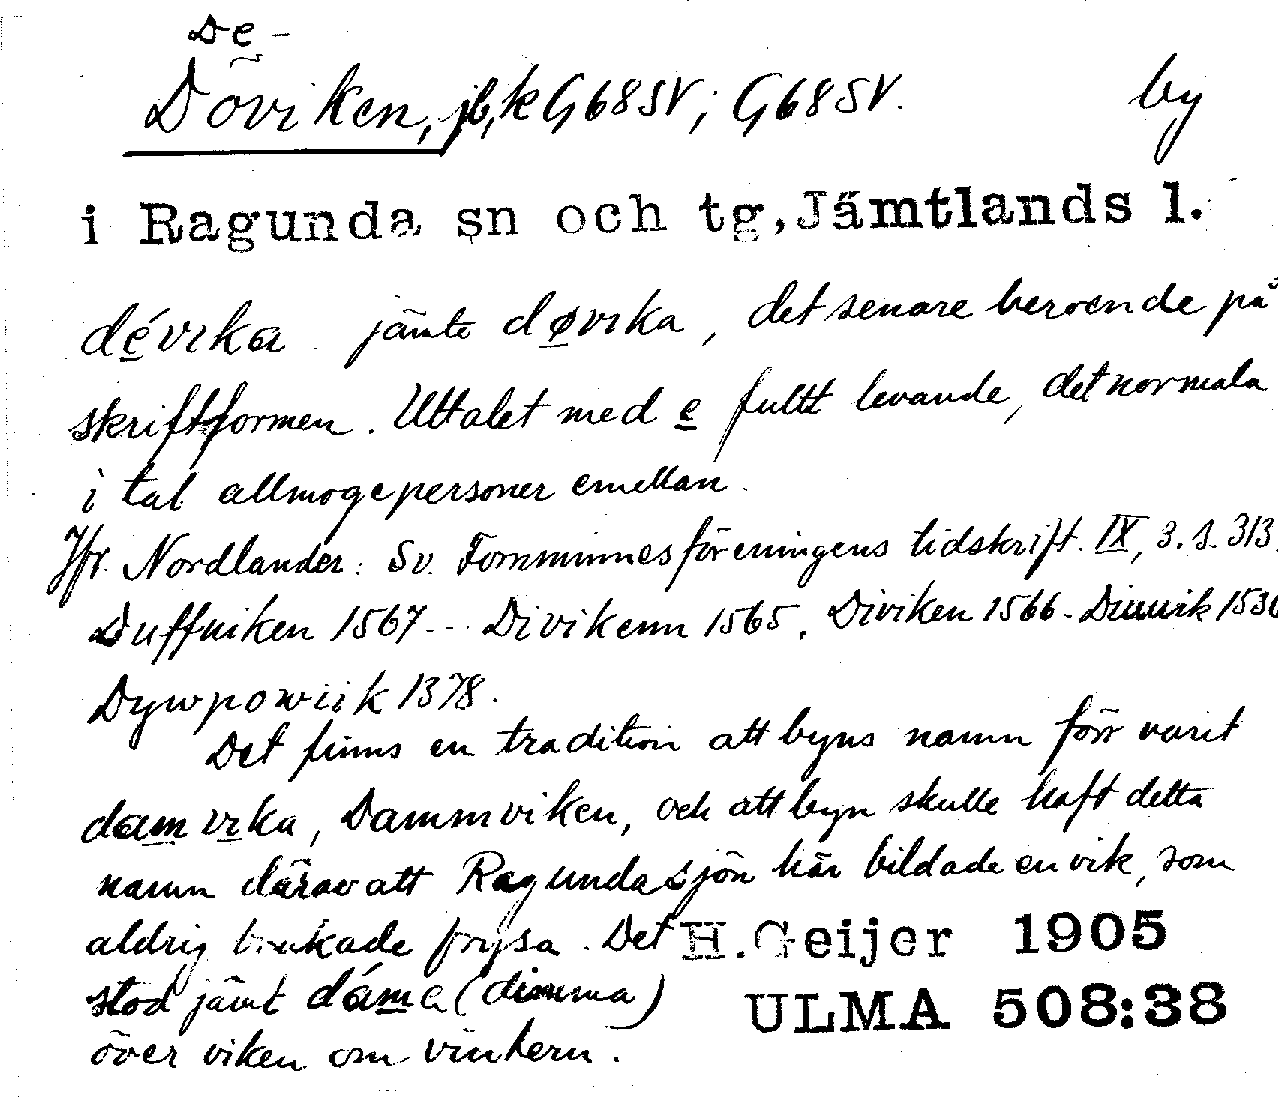 De-
Döviken, jb,k G68SV; G68SV. by
i Ragunda sn och tg, Jämtlands l.
dévika jämte døvika, det senare beroende på
skriftformen. Uttalet med e fullt levande, det normala
i tal allmogepersoner emellan.
Jfr. Nordlander: Sv. Fornminnesföreningens tidskrift. IX, 3. s. 313.
Duffuiken 1567 -- Divikenn 1565. Diviken 1566 - 
Dywpowiik 1378.
Det finns en tradition att byns namn förr varit
damvika, Dammviken, och att byn skulle haft detta
namn därav att Ragundasjön här bildade en vik, som
aldrig brukade frysa. Det H. Geijer 1905
stod jämt dáma (dimma) ULMA 508:38
över viken om vintern.